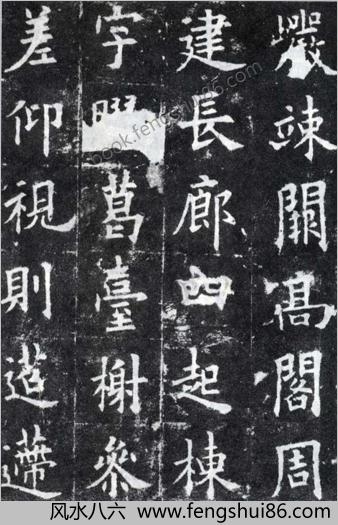 巖竦闕髙閣周
建長廊四起棟
宇葛臺榭參
差仰視則迢遰
book.fengshui86.com
风水八六 www.fengshui86.com